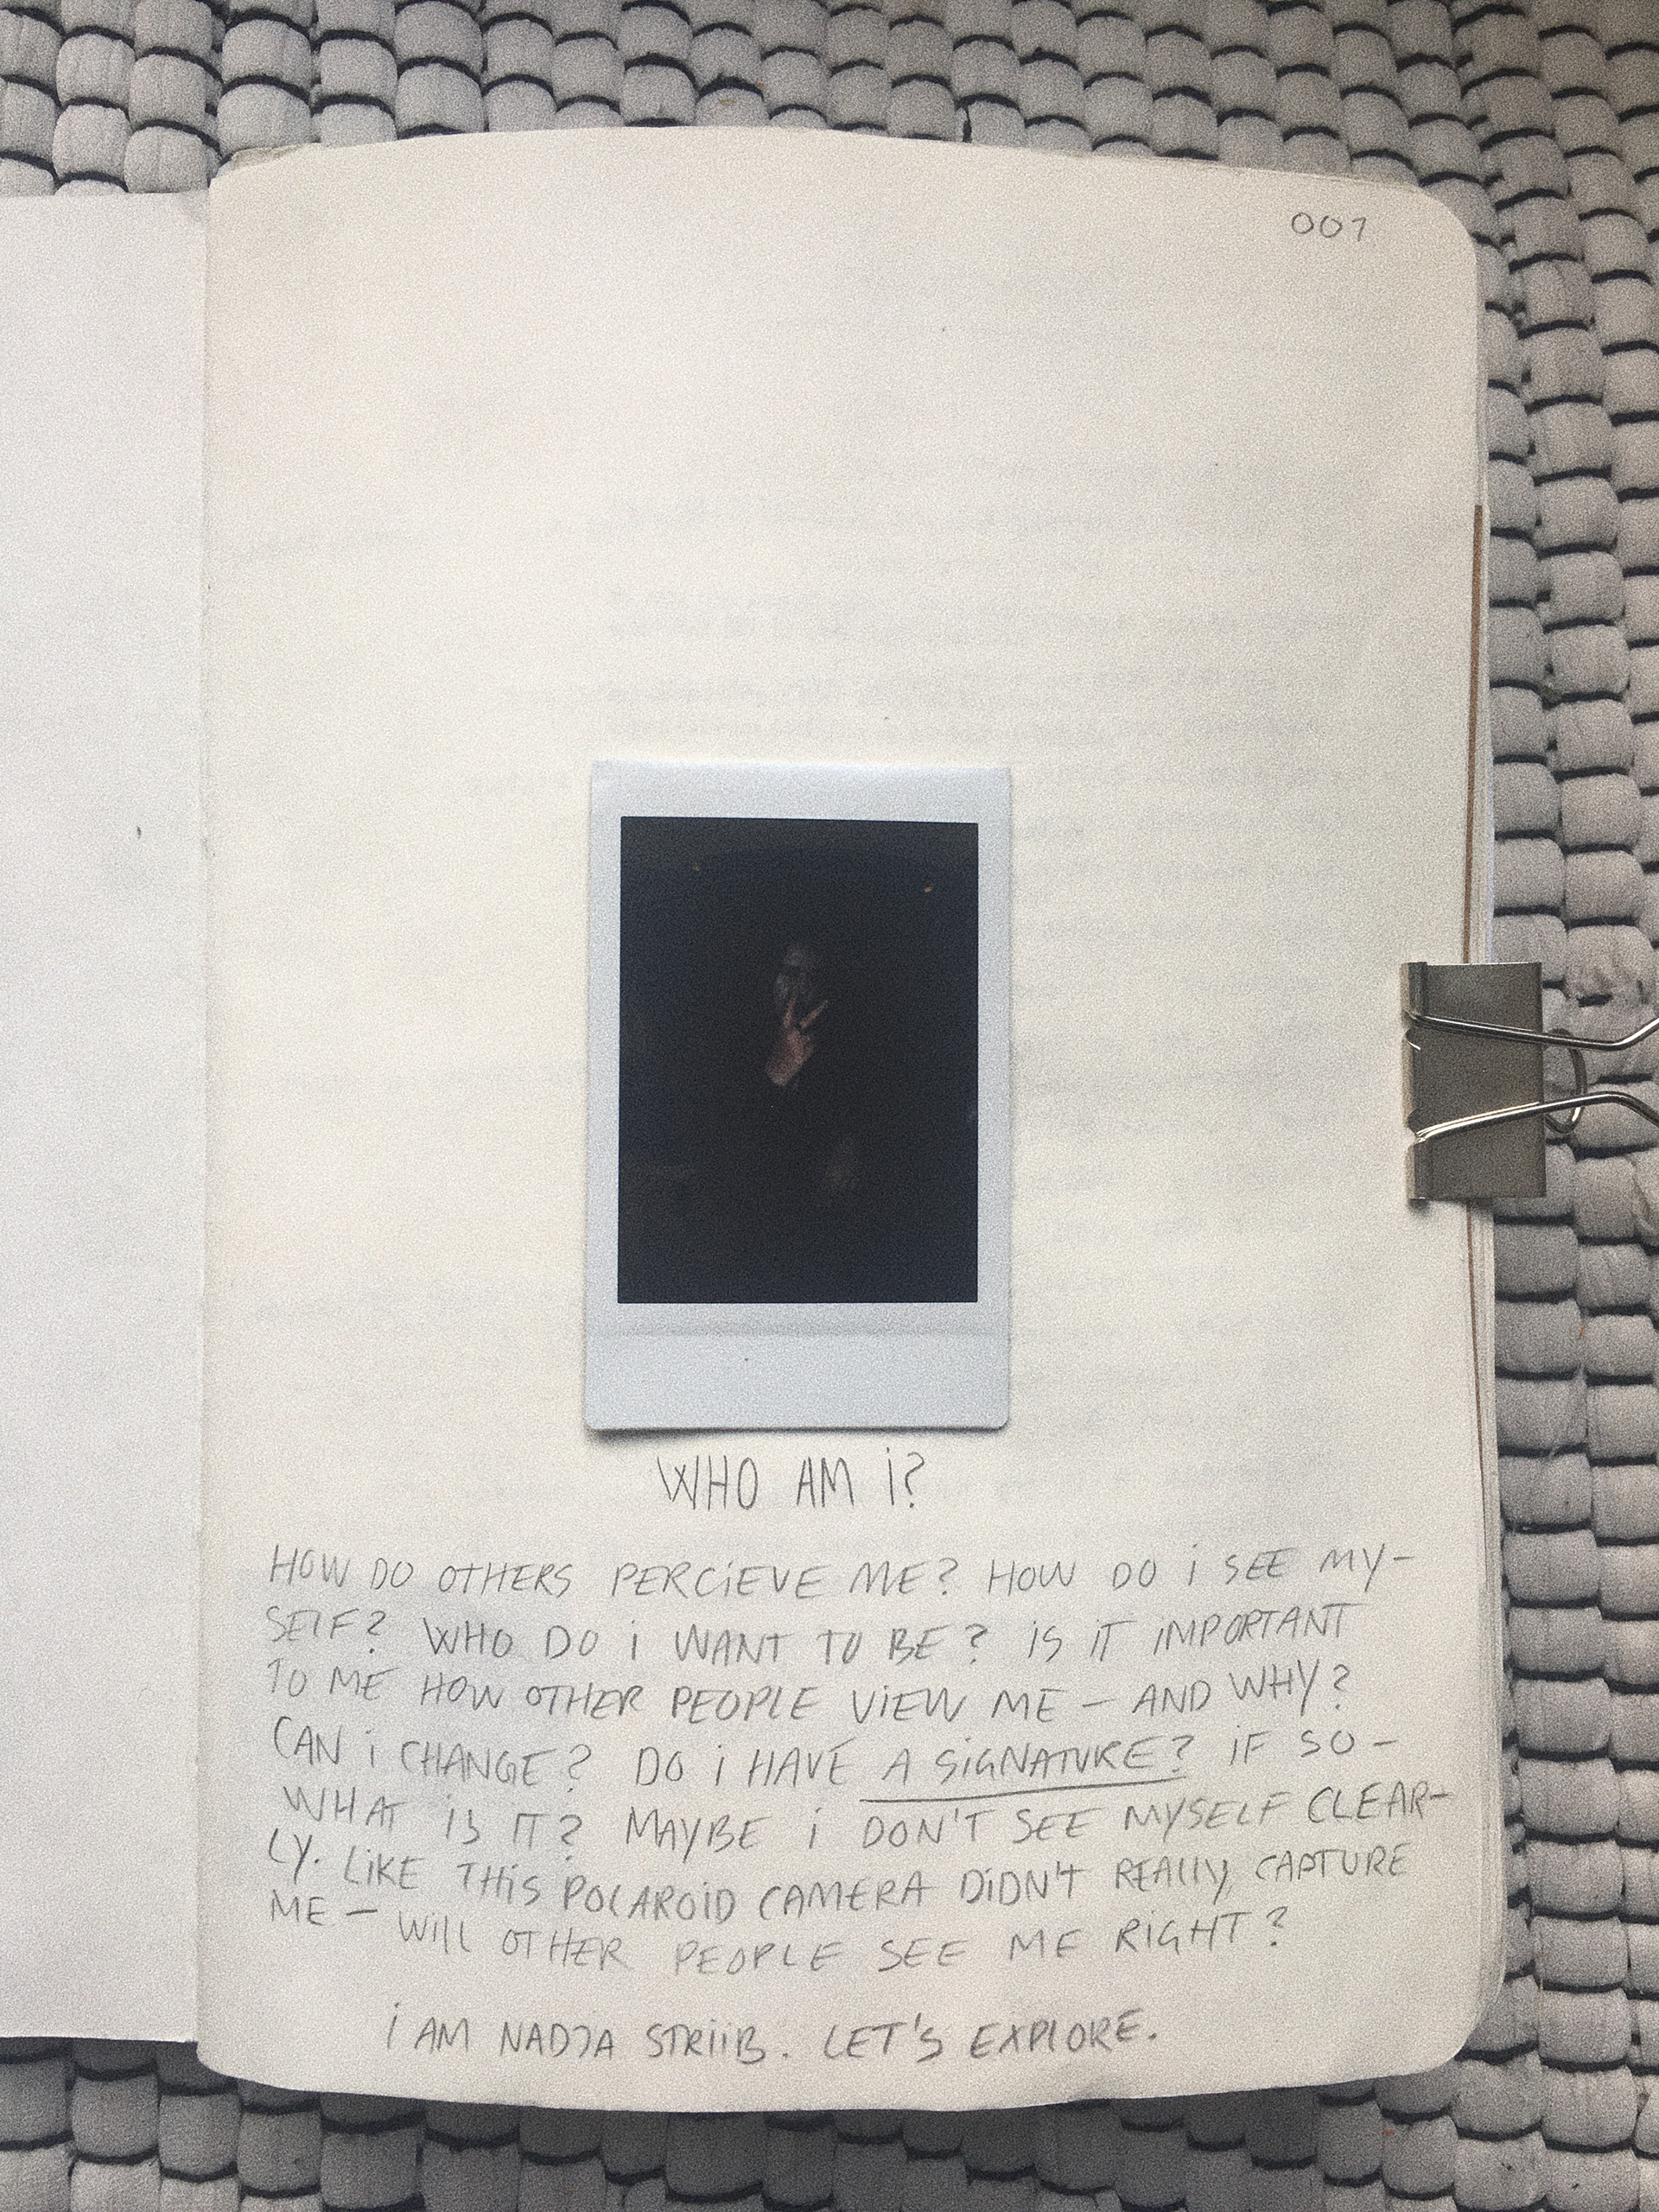 001
WHO AM i?
HOW DO OTHERS PERCiEVE ME? HOW DO i SEE MY-
SELF? WHO DO i WANT TO BE? iS iT iMPORTANT
TO ME HOW OTHER PEOPLE ViEW ME – AND WHY?
CAN i CHANGE? DO i HAVE A SiGNATURE? iF SO –
WHAT iS iT? MAYBE i DON'T SEE MYSELF CLEAR-
LY. LiKE THiS POLAROiD CAMERA DiDN'T REALLY CAPTURE
ME – WiLL OTHER PEOPLE SEE ME RiGHT?
i AM NADJA STRiiB. LET'S EXPLORE.